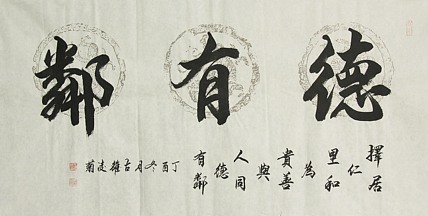 德有鄰
擇居
仁
里和
為
貴善
與
人同
德
有鄰
丁酉冬月